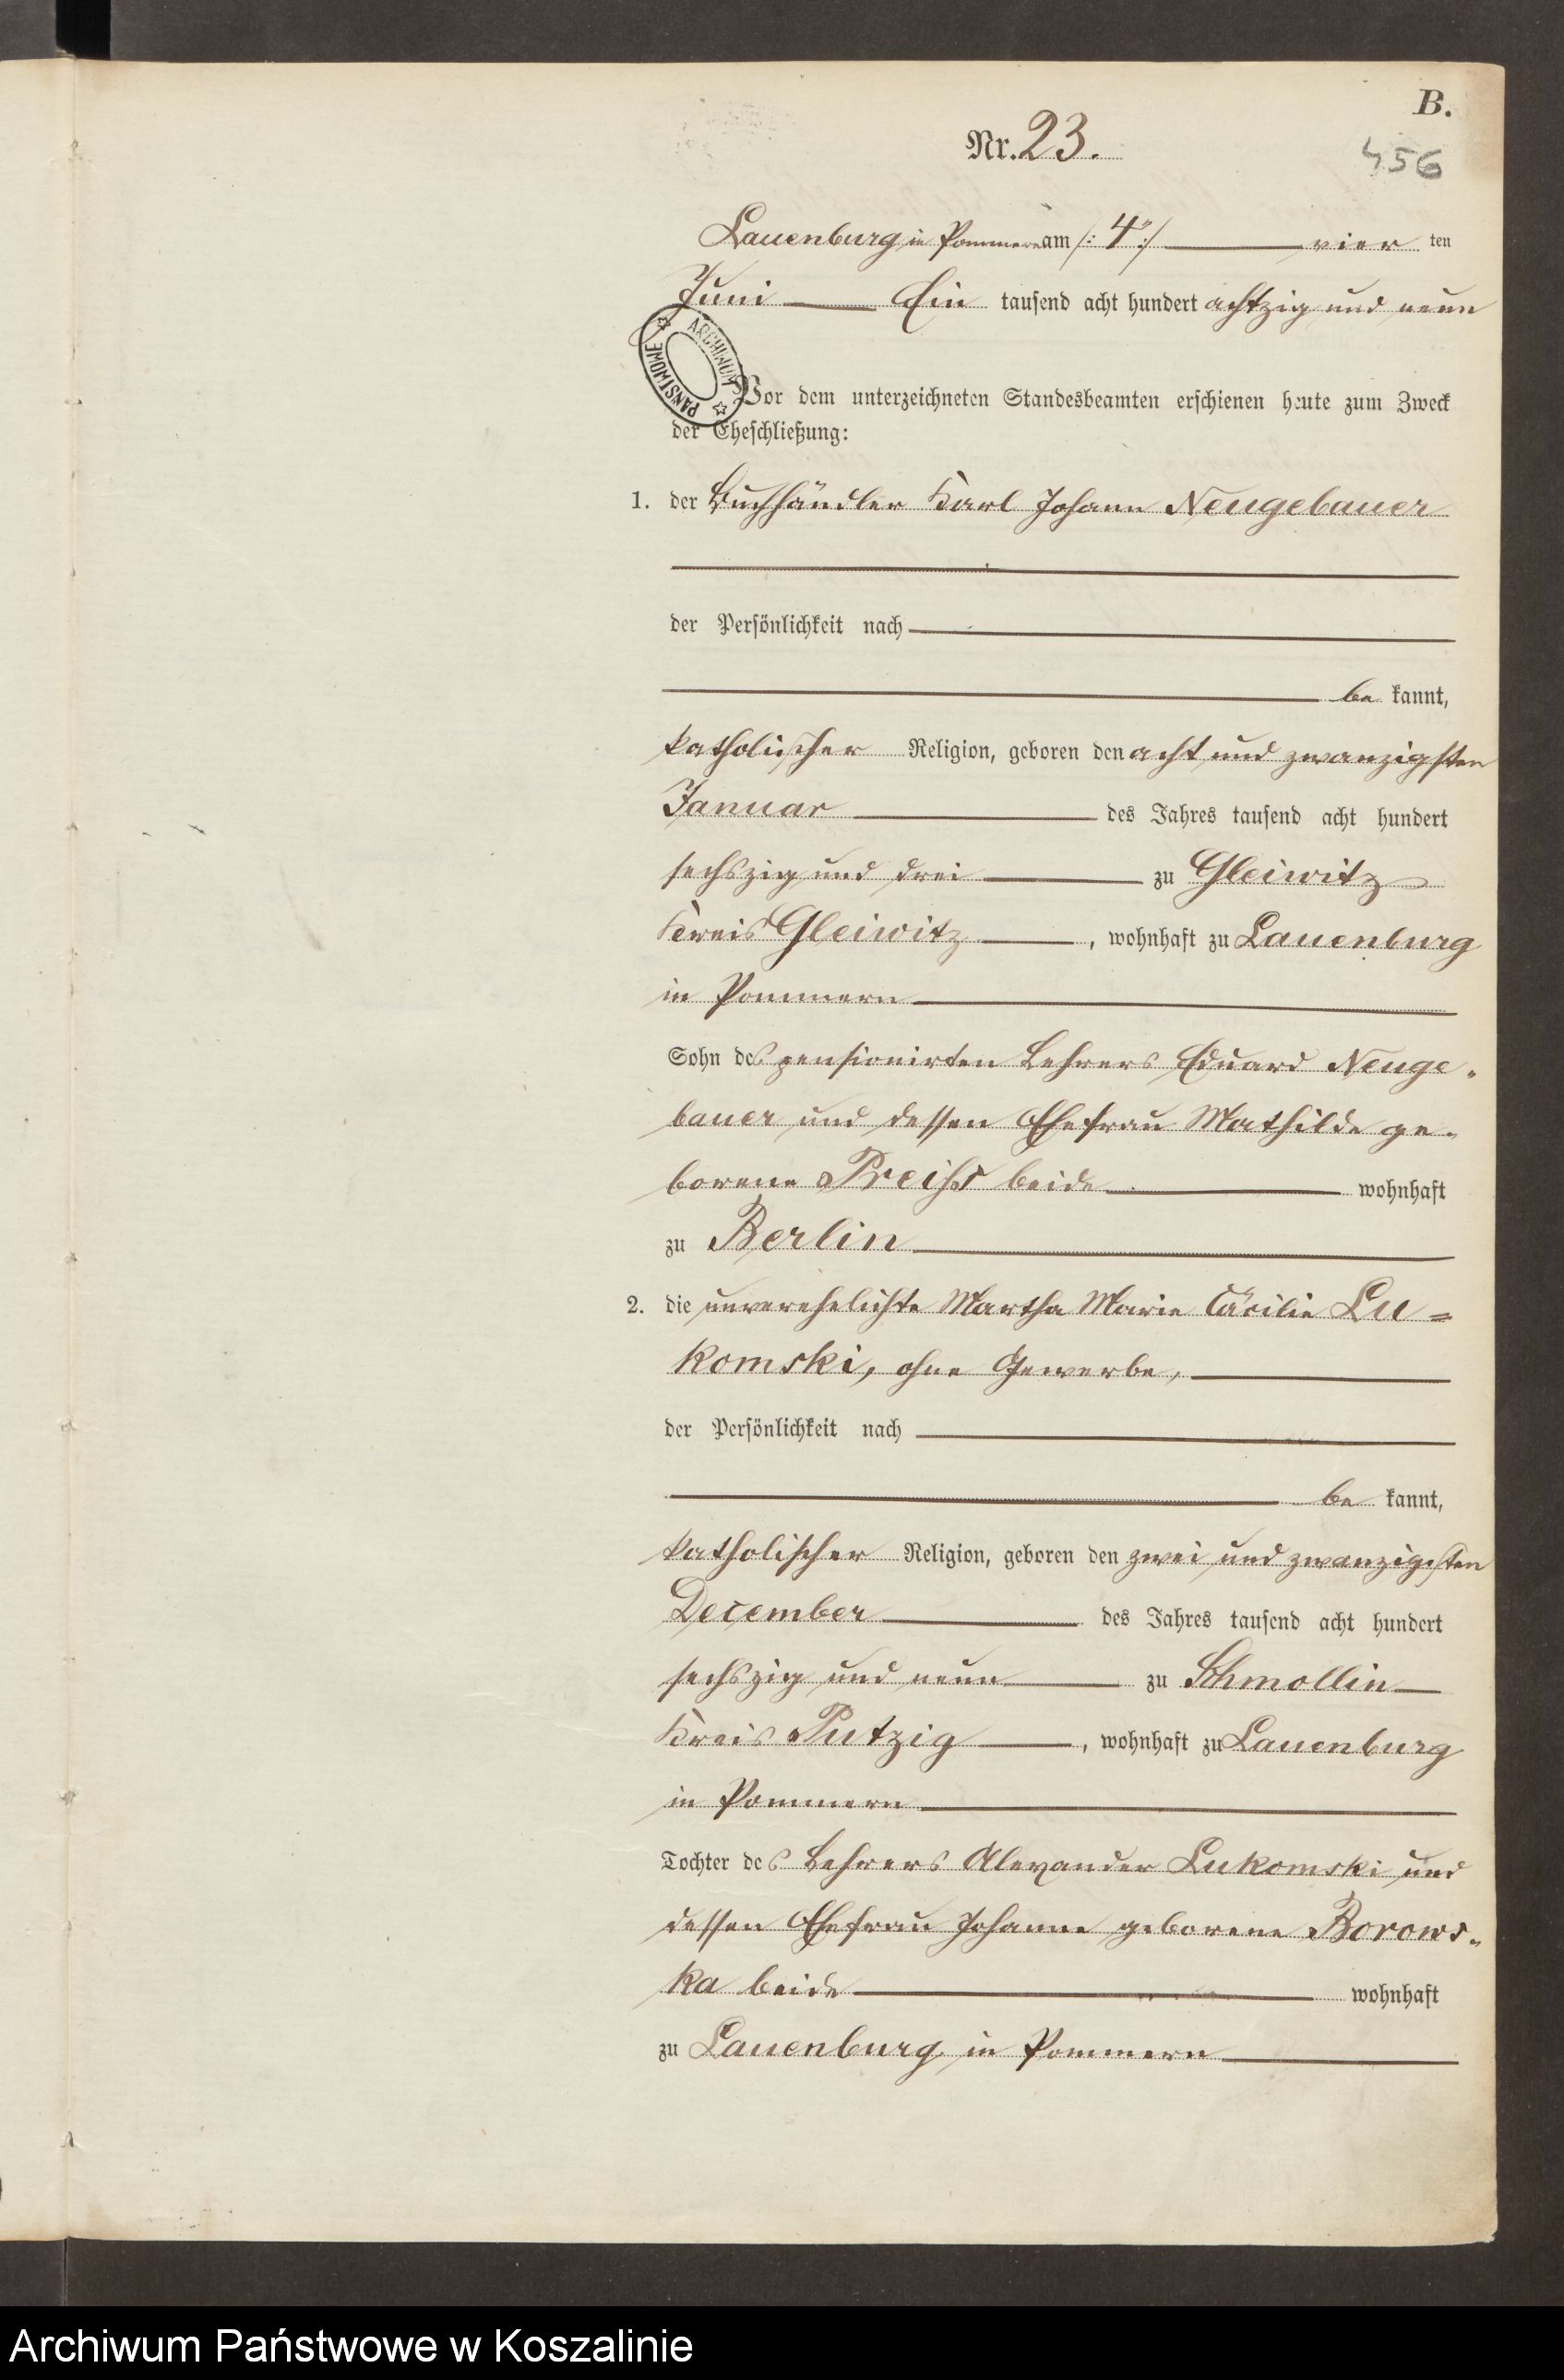 B.
Nr. 23.
456
Lauenburg in Pommern am /: 4" :/ vier ten
Juni Ein tausend acht hundert achtzig und neun
ARCHIWUM PAŃSTWOWE
Vor dem unterzeichneten Standesbeamten erschienen heute zum Zweck
der Eheschließung:
1. der Buchhändler Karl Johann Neugebauer
der Persönlichkeit nach
be kannt,
katholischer Religion, geboren den acht und zwanzigsten
Januar des Jahres tausend acht hundert
sechszig und drei zu Gleiwitz
Kreis Gleiwitz, wohnhaft zu Lauenburg
in Pommern
Sohn des pensionirten Lehrers Eduard Neuge-
bauer und dessen Ehefrau Mathilde ge-
borene Preiss beide wohnhaft
zu Berlin
2. die unverehelichte Martha Marie Cäcilie Lu=
komski, ohne Gewerbe,
der Persönlichkeit nach
be kannt,
katholischer Religion, geboren den zwei und zwanzigsten
December des Jahres tausend acht hundert
sechszig und neun zu Schmollin
Kreis Putzig, wohnhaft zu Lauenburg
in Pommern
Tochter des Lehrers Alexander Lukomski und
dessen Ehefrau Johanne geborene Borows-
ka beide wohnhaft
zu Lauenburg in Pommern
Archiwum Państwowe w Koszalinie